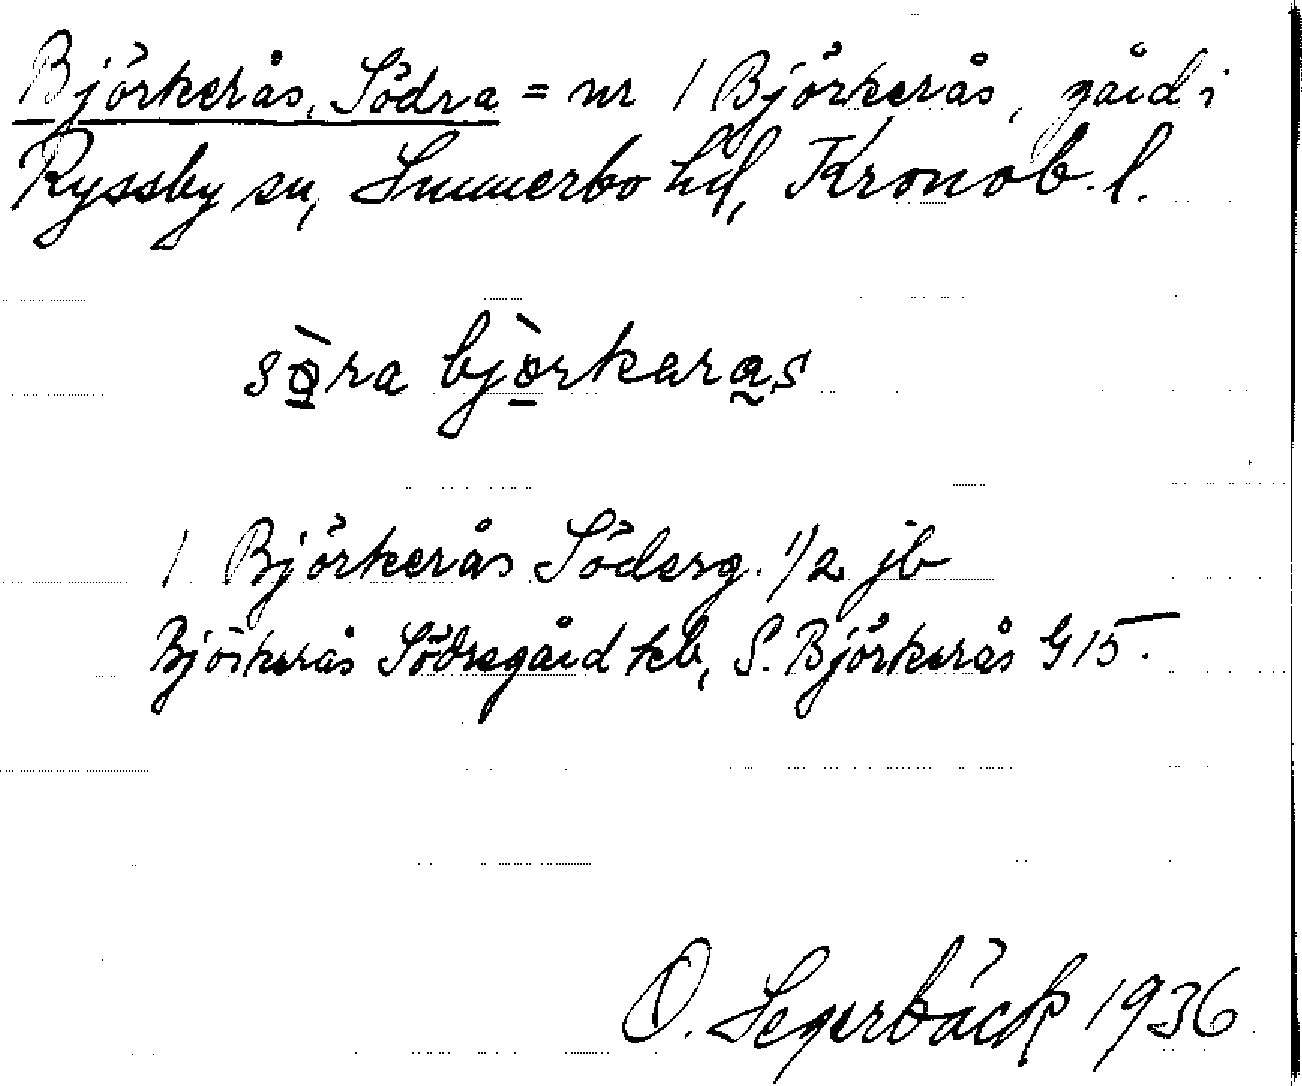 Björkerås, Södra = nr 1 Björkerås, gård i
Ryssby sn, Sunnerbo hd, Kronob. l.
sö̀ra bjö̀rkaras
1 Björkerås Söderg. 1/2 jb
Björkerås Södregård tcb, S. Björkerås G 15.
O. Segerbäck 1936